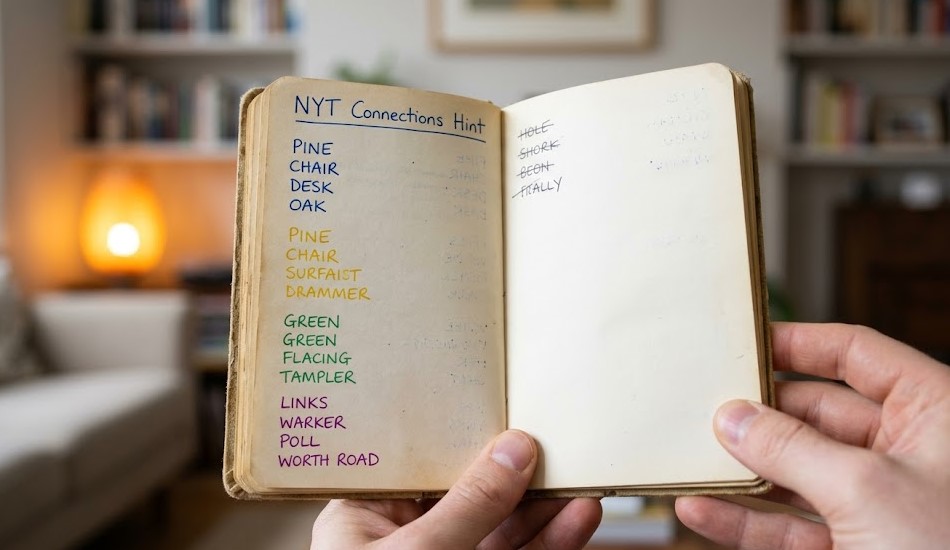 NYT Connections Hint
PINE
CHAIR
DESK
OAK
PINE
CHAIR
SURFAIST
DRAMMER
GREEN
GREEN
FLACING
TAMPLER
LINKS
WARKER
POLL
WORTH ROAD
HOLE
SHORK
BEON